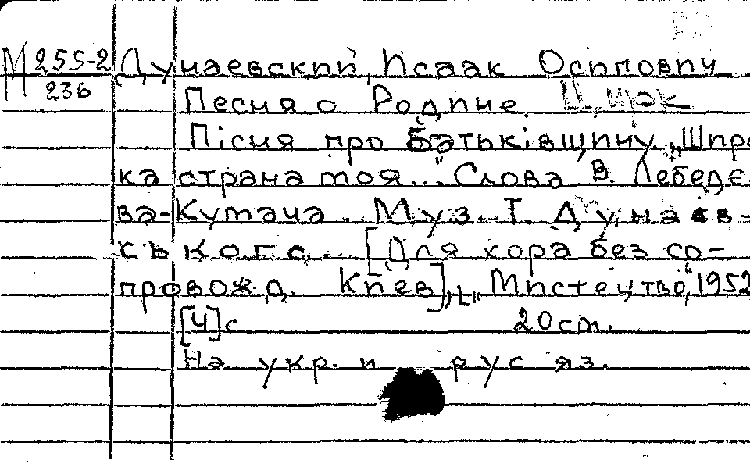 М 255-2 Дунаевский, Исаак Осипович
236
Песня о Родине.
Пісня про Батьківщину. „Широ
ка страна моя..." Слова В. Лебедє
ва-Кумача. Муз. І. Дунаєв-
ського. [Для хора без со-
провожд. Киев], „Мистецтво", 1952
[4] с 20 см.
На укр. и рус яз.